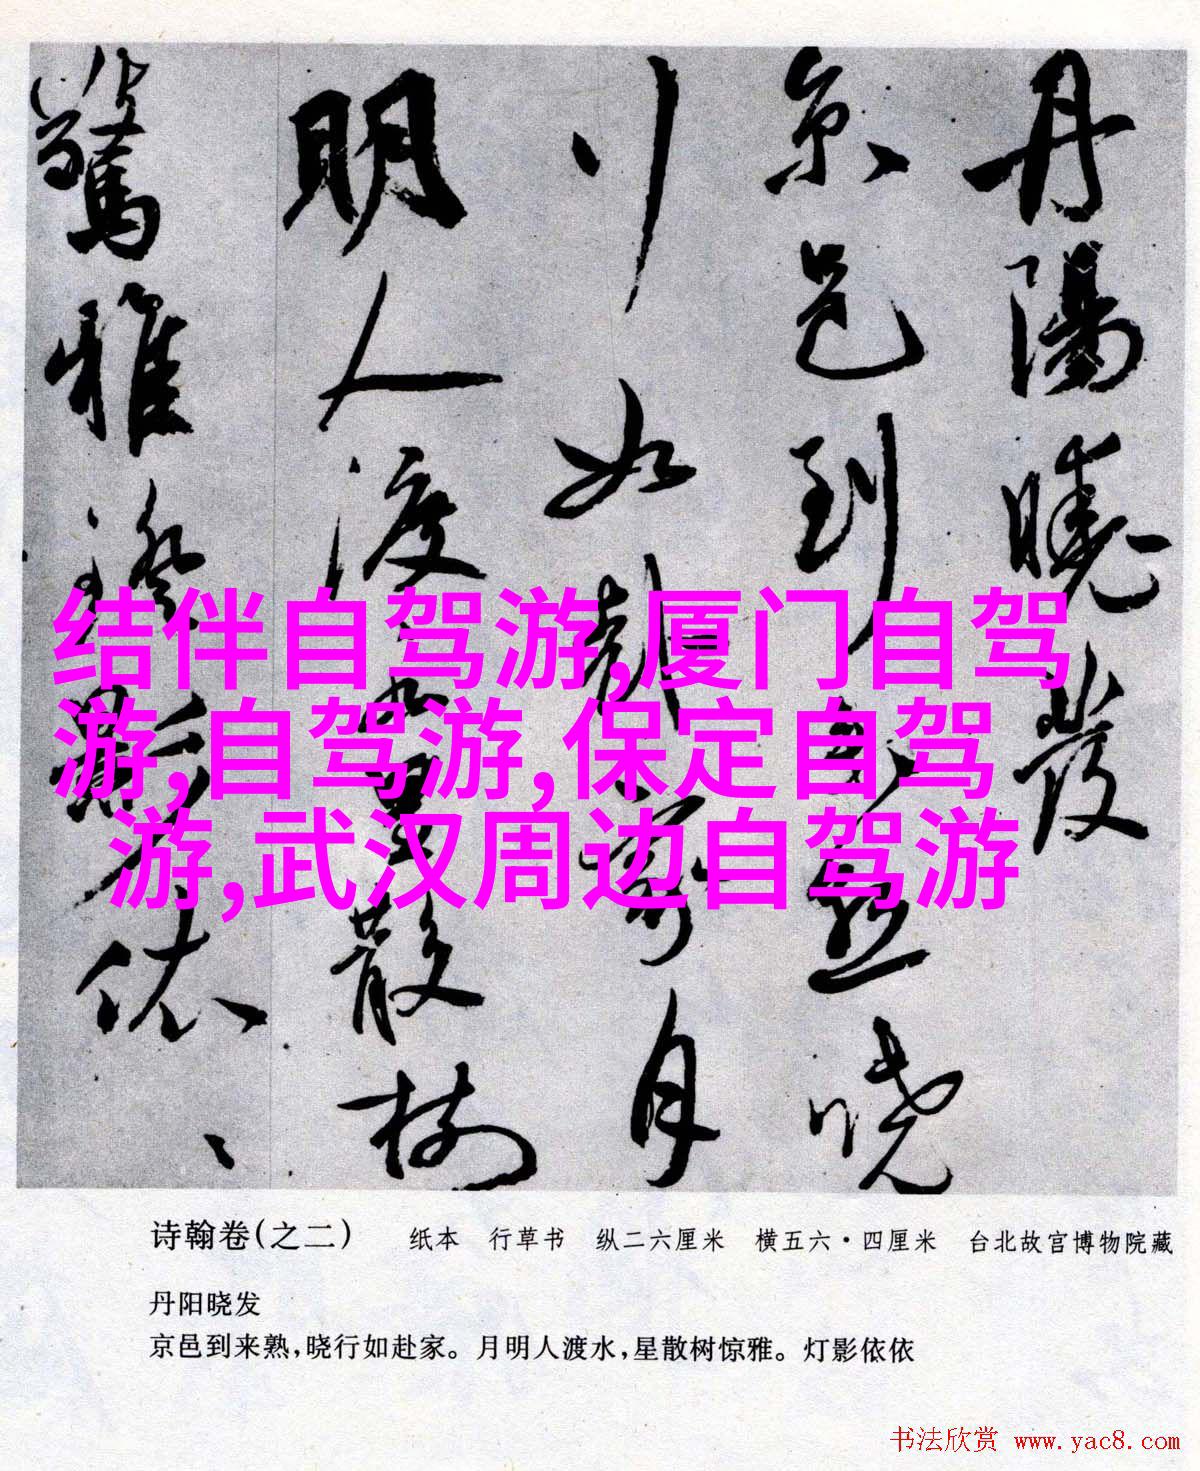 丹陽曉發
京邑到來熟曉
行如赴家月
明人渡水星散樹
驚雅燈影依、
结伴自驾游,厦门自驾
游,自驾游,保定自驾
游,武汉周边自驾游
诗翰卷(之二) 纸本 行草书 纵二六厘米 横五六·四厘米 台北故宫博物院藏
丹阳晓发
京邑到来熟,晓行如赴家。月明人渡水,星散树惊雅。灯影依依
书法欣赏 www.yac8.com